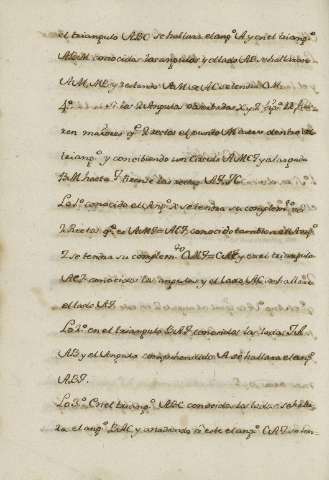 el triangulo ABC se hallara el ang.º A, y en el triang.º
ABM conocidos los angulos y el lado AB, se hallaran
AM, MB, y restando AM de AC se tendra CM.
4.º Si los 2 Angulos observados X y Z fue-
ren maiores q.e 2 rectos el punto M caera dentro del
triang.º y concibiendo un Circulo AMC y alargada
BM hasta tirense las rectas
Lo 1.º conocido el Ang.º X se tendra su complem.to a
2 Rectos q.e es conocido tambien el Ang.º
Z se tendra su complem.to y en el triangulo
conocidos los angulos y el lado AC se hallara
el lado
Lo 2.º en el triangulo conocidos los lados
AB y el Angulo comprehendido A se hallara el ang.º
Lo 3.º En el triang.º ABC conocidos los lados se halla-
ra el ang.º BAC y anadiendo à este el ang.º se ten-